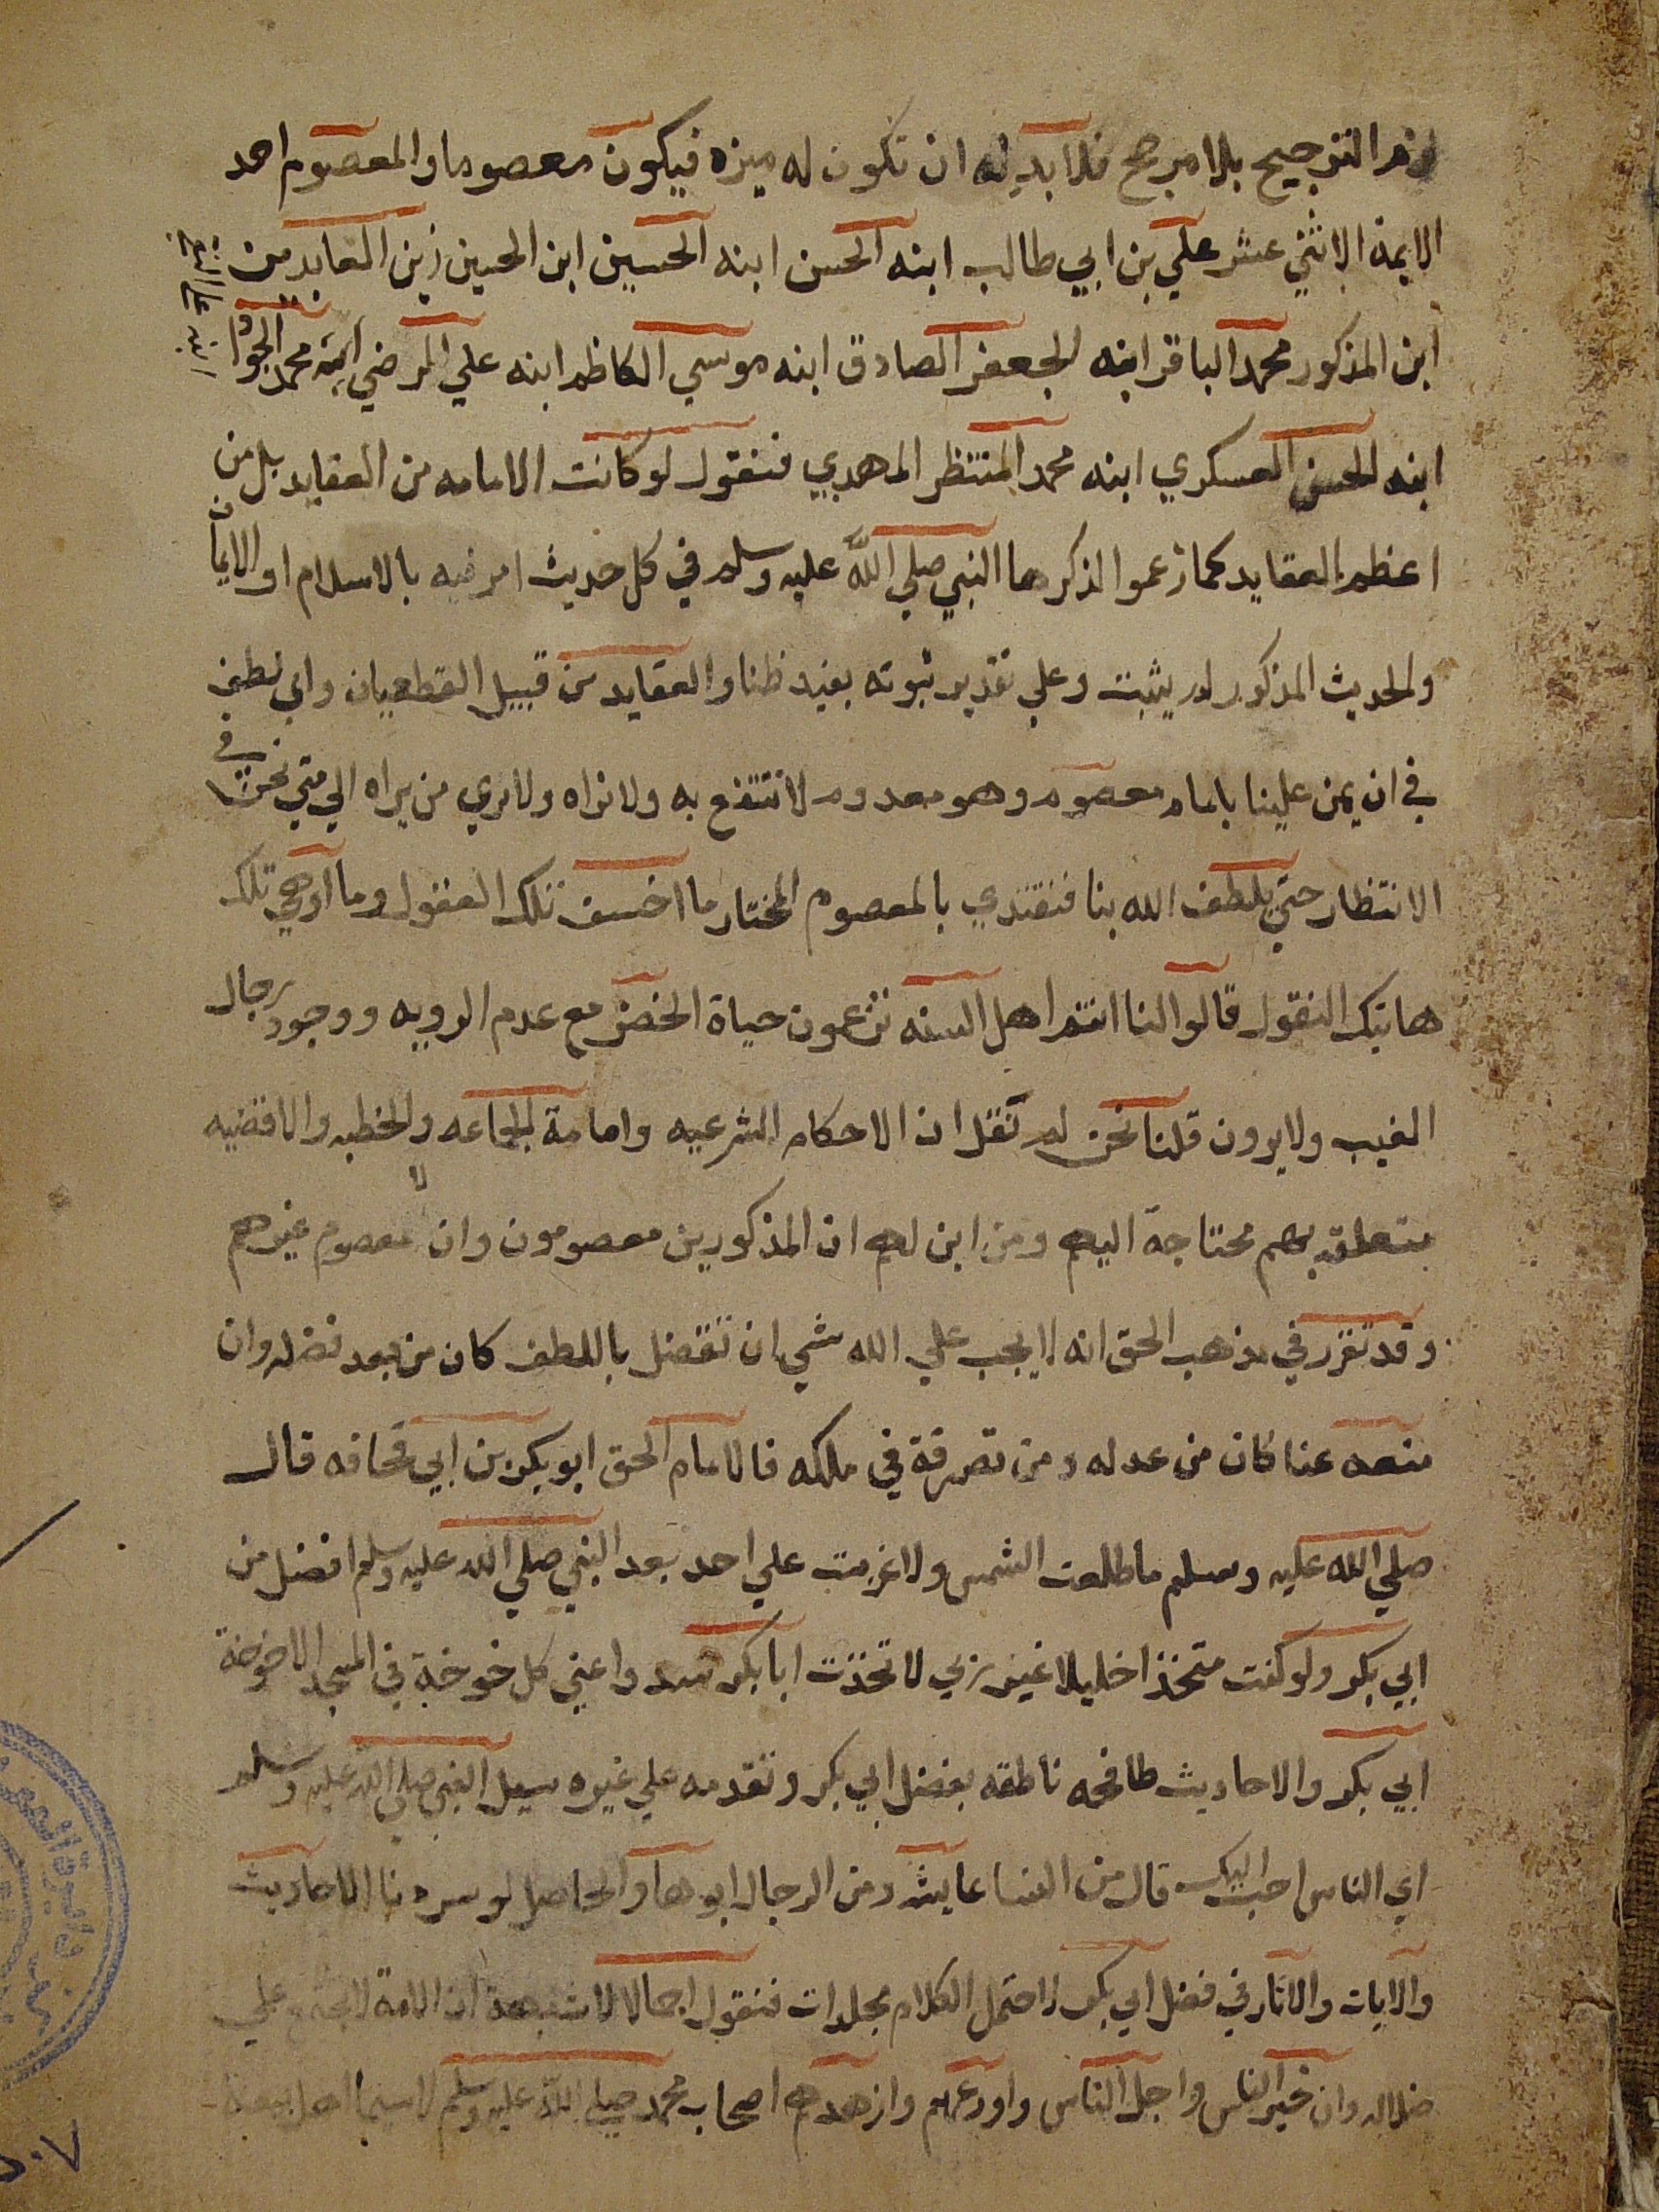 لزم الترجيح بلا مرجح فلا بد له ان تكون له ميزه فيكون معصوما والمعصوم احد
الايمة الاثني عشر علي بن ابي طالب ابنه الحسن ابنه الحسين ابن الحسين زين العابدين
ابن المذكور محمد الباقر ابنه الجعفر الصادق ابنه موسي الكاظم ابنه علي المرضي ابنه محمد الجواد
ابنه الحسن العسكري ابنه محمد المنتظر المهدي فنقول لو كانت الامامه من العقايد بل من
اعظم العقايد كما زعموا لذكرها النبي صلي الله عليه وسلم في كل حديث امر فيه بالاسلام او الايمان
والحديث المذكور لم يثبت وعلي تقدير ثبوته يفيد ظنا والعقايد من قبيل القطعيات واي لطف
في ان يمن علينا بامام معصوم وهو معدوم لا ننتفع به ولا نراه ولا نري من يراه الي متي نحن في
الانتظار حتي يلطف الله بنا فنقتدي بالمعصوم المختار ما اخسف تلك العقول وما اوهي تلك
هاتيك النقول قالوا لنا انتم اهل السنه تزعمون حياة الخضر مع عدم الرويه ووجود رجال
الغيب ولا يرون قلنا نحن لم نقل ان الاحكام الشرعيه وامامة الجماعه والخطبه والاقضيه
متعلقه بهم محتاجة اليهم ومن اين لهم ان المذكورين معصومون وان لا معصوم غيرهم
وقد تقرر في مذهب الحق انه لا يجب علي الله شي ان تفضل باللطف كان من بعد فضله وان
منعه عنا كان من عدله ومن تصرفة في ملكه فالامام الحق ابو بكر بن ابي قحافه قال
صلي الله عليه وسلم ما طلعت الشمس ولا غربت علي احد بعد النبي صلي الله عليه وسلم افضل من
ابي بكر ولو كنت متخذا خليلا غير ربي لاتخذت ابا بكر سدوا عني كل خوخة في المسجد الا خوخة
ابي بكر والاحاديث طافحه ناطقه بفضل ابي بكر وتقدمه علي غيره سيل النبي صلي الله عليه وسلم
اي الناس احب اليك قال من النسا عايشه ومن الرجال ابوها والحاصل لو سردنا الاحاديث
والايات والاثار في فضل ابي بكر لاحتمل الكلام مجلدات فنقول اجمالا لا شبهة ان الامة لا تجتمع علي
ضلاله وان خير الناس واجل الناس واورعهم وازهدهم اصحاب محمد صلي الله عليه وسلم لا سيما اهل